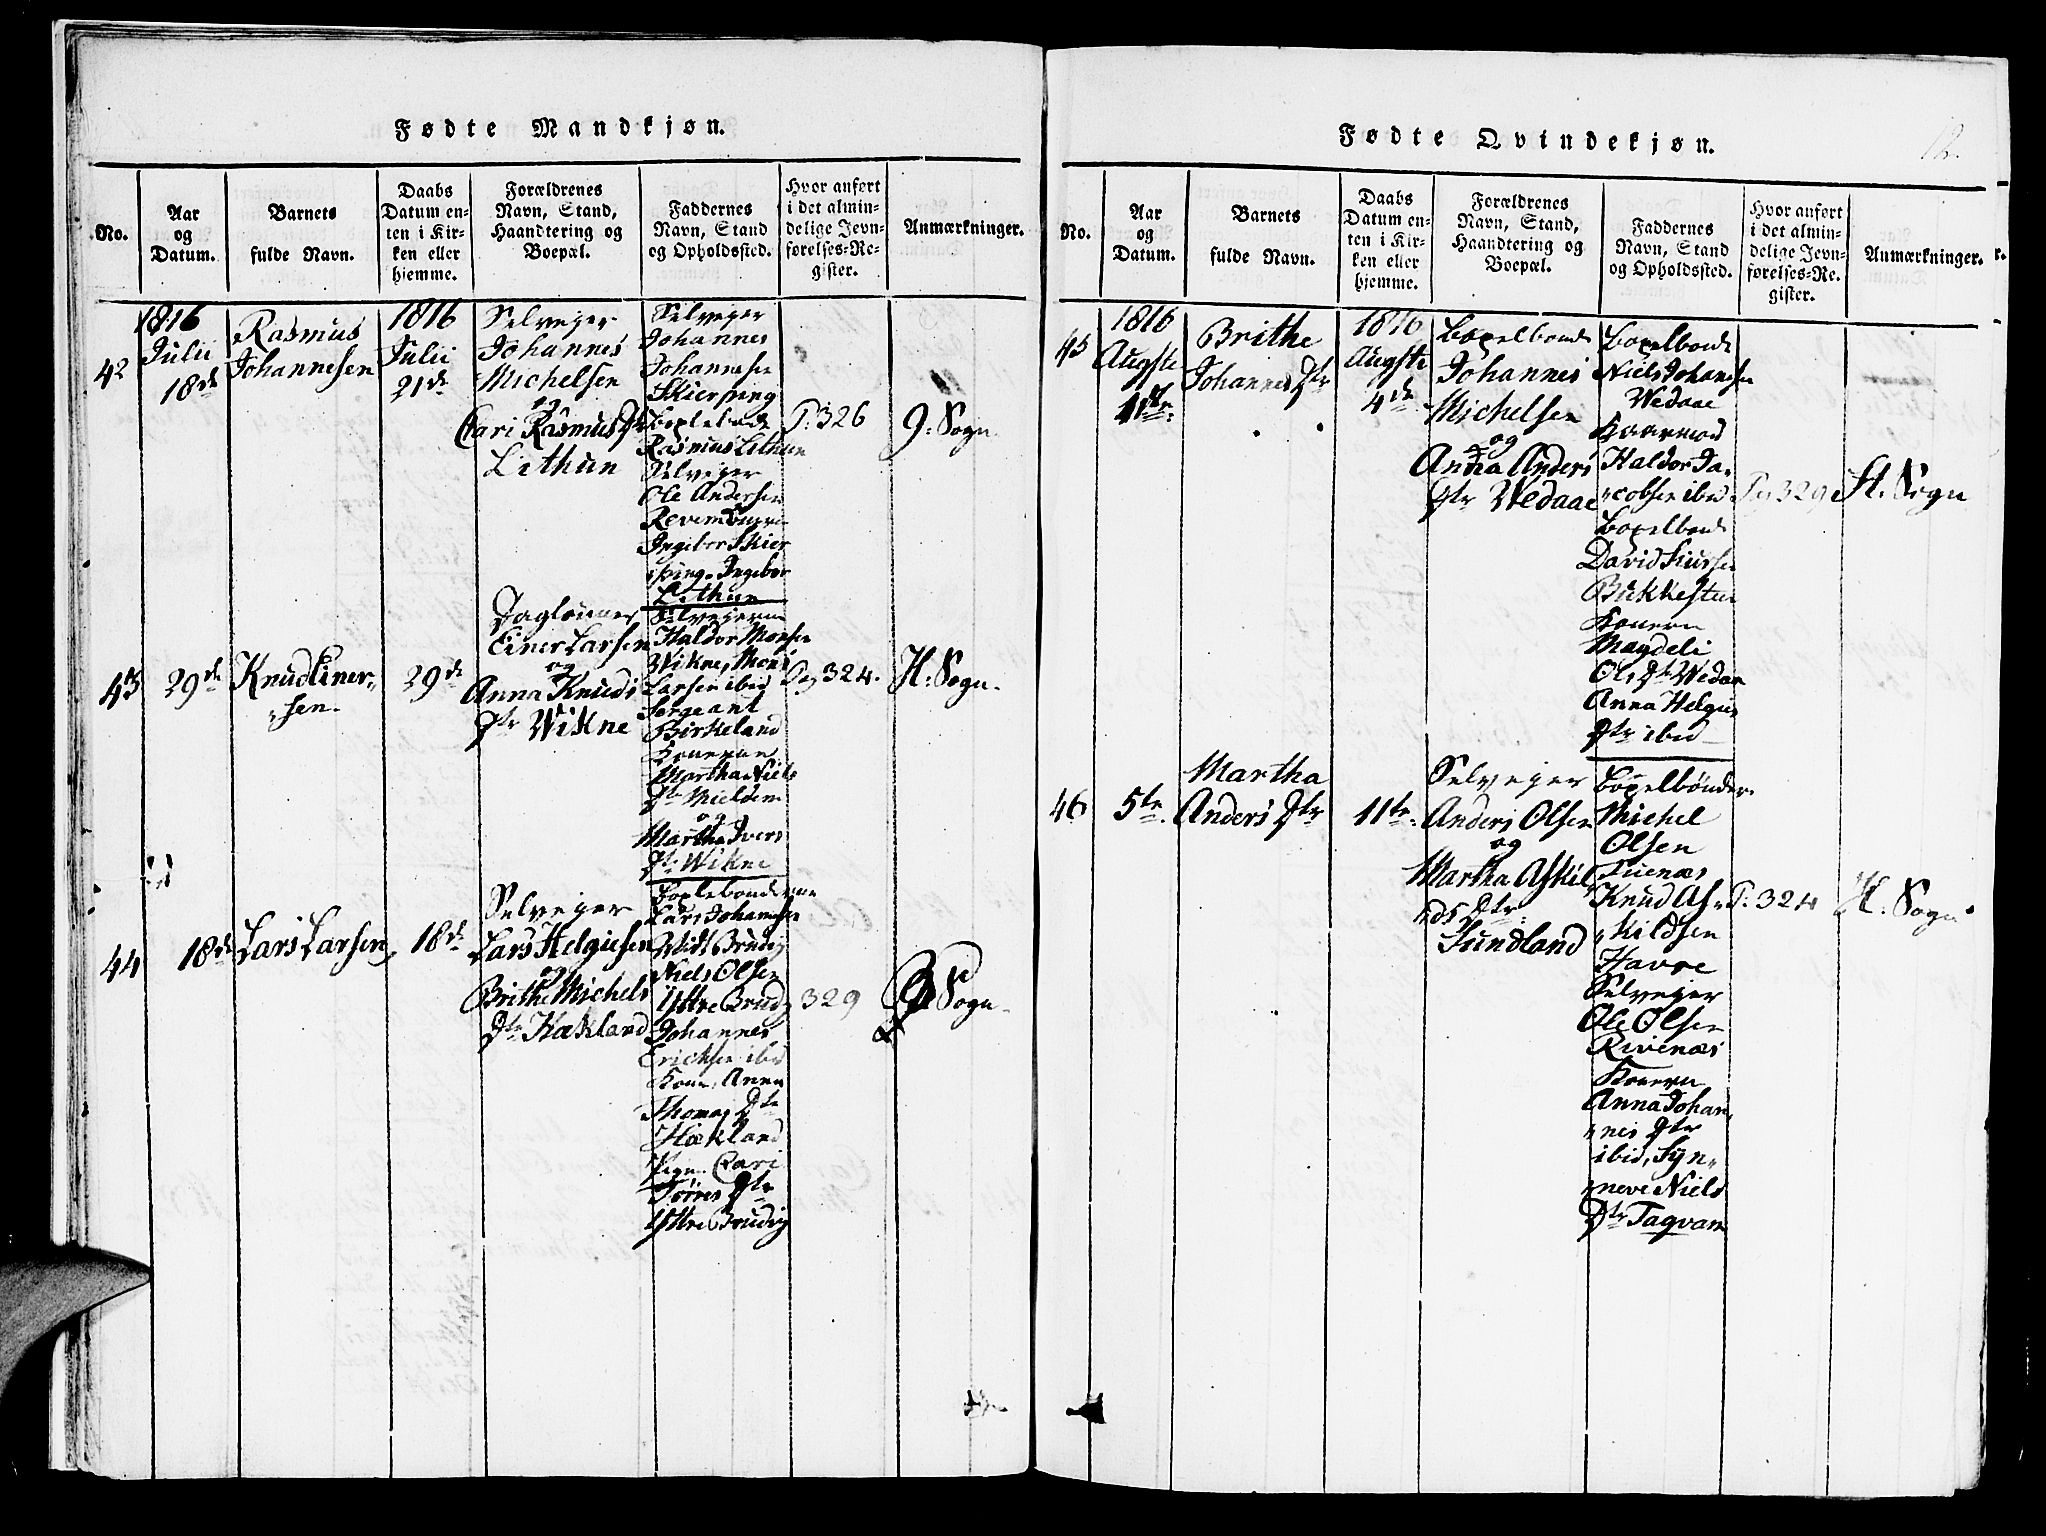 Fødte Mandkjøn.
No.
Aar
og
Datum.
Barnets
fulde Navn.
Daabs
Datum en-
ten i Kir-
ken eller
hjemme.
Forældrenes
Navn, Stand,
Haandtering og
Boepæl.
Faddernes
Navn, Stand
og Opholdssted.
Hvor anført
i det almin-
delige Jevn-
førelses-Re-
gister.
Anmærkninger.
42
1816
Julii
18de
Rasmus
Johannesen
1816
Julii
21de
Selveyer
Johannes
Michelsen
og
Cari Rasmus Dtr
Lithun
Selveyer
Johannes
Johannesen
Skierping
Rasmus Lithun
Selveyer
Ole Andersen
Ingebor Skier
ping. Ingebor
Lithun
P. 326
9. Sogn.
43
29de
Knud Einer„
„sen.
29de
Daglönner
Einer Larsen
og
Anna Knuds
Dtr Wikne
Selveyerne
Haldor Monsen
Wikne, Mons
Larsen ibid
Sergeant
Birkeland
Konerne
Martha Niels
Dtr Mieldem
og
Martha Ivers
Dtr Wikne
Pag 324.
H. Sogn.
44
18de
Lars Larsen
18de
Selveyer
Lars Helgiesen
og
Brithe Michels
Dtr Hækland
Lars Johannesen
Midt Bruvig
Niels Olsen
Yttre Bruvig
Johannes
Erichsen ibid
Kone, Anna
Thomas Dtr
Hækland
Pigen Cari
Tøres Dtr
Yttre Bruvig
329
Sogn.
Fødte Qvindekjøn.
12.
No.
Aar
og
Datum.
Barnets
fulde Navn.
Daabs
Datum en-
ten i Kir-
ken eller
hjemme.
Forældrenes
Navn, Stand,
Haandtering og
Boepæl.
Faddernes
Navn, Stand
og Opholdssted.
Hvor anført
i det almin-
delige Jevn-
førelses-Re-
gister.
Anmærkninger.
45
1816
Augsti
Brithe
Johannes Dtr
1816
Augsti
4de
Boxelbonde
Johannes
Michelsen
og
Anna Anders
Dtr Wedaae
Boxelbonde
Niels Johansen
Wedaae
Haldor Ja„
„cobsen ibid
Boxelbonde
David
Konen
Magdeli
Ols Dtr Wedaae
Anna Helgies
Dtr ibid
Pag 329
H. Sogn
46
5te.
Martha
Anders Dtr
11te.
Selveyer
Anders Olsen
og
Martha Askil„
„ds Dtr.
Sundland
Boxelbönder
Michel
Olsen
Knud As„
„kildsen
Havre
Selveyer
Ole Olsen
Rivenæs
Konen
Anna Johan„
„nes Dtr
ibid, Syn„
„neve Niels
Dtr Taqvam
P. 324
H. Sogn